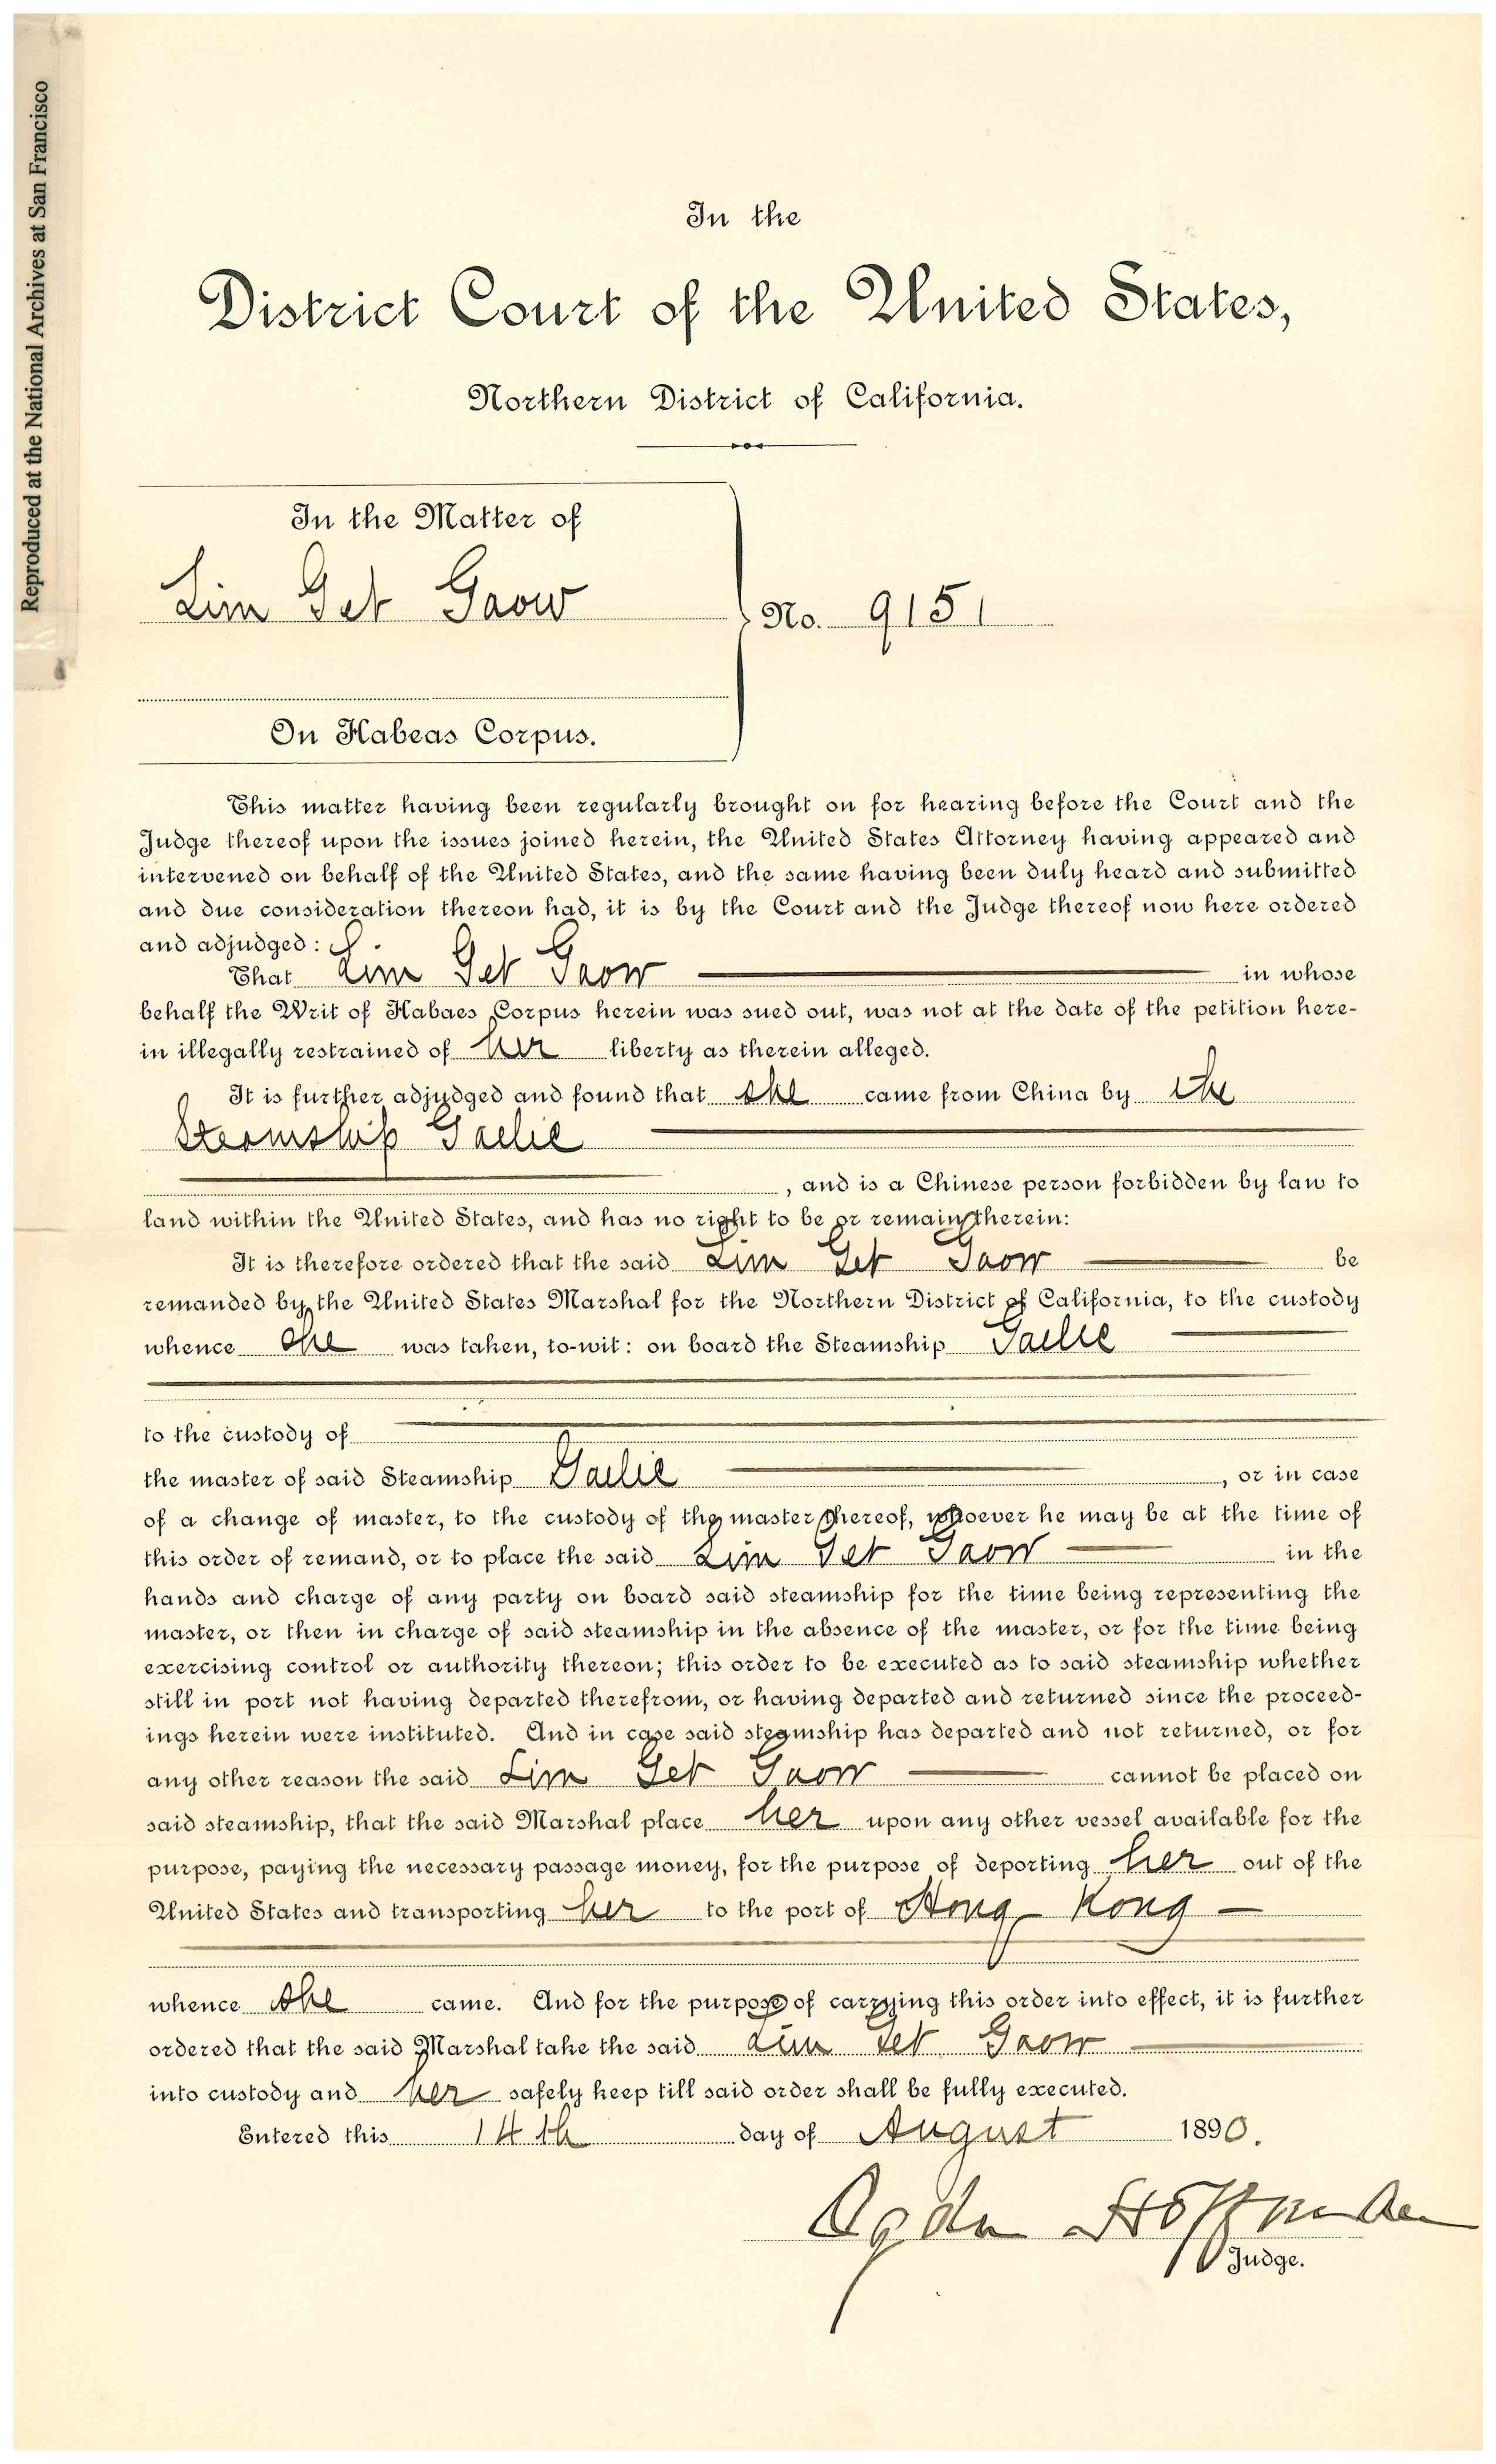 Reproduced at the National Archives at San Francisco
In the
District Court of the United States,
Northern District of California.
In the Matter of
Lim Get Gaow
No. 9151
On Habeas Corpus.
This matter having been regularly brought on for hearing before the Court and the
Judge thereof upon the issues joined herein, the United States Attorney having appeared and
intervened on behalf of the United States, and the same having been duly heard and submitted
and due consideration thereon had, it is by the Court and the Judge thereof now here ordered
and adjudged:
That Lim Get Gaow in whose
behalf the Writ of Habaes Corpus herein was sued out, was not at the date of the petition here-
in illegally restrained of her liberty as therein alleged.
It is further adjudged and found that she came from China by the
Steamship Gaelic
, and is a Chinese person forbidden by law to
land within the United States, and has no right to be or remain therein:
It is therefore ordered that the said Lim Get Gaow be
remanded by the United States Marshal for the Northern District of California, to the custody
whence she was taken, to-wit: on board the Steamship Gaelic
to the custody of
the master of said Steamship Gaelic , or in case
of a change of master, to the custody of the master thereof, whoever he may be at the time of
this order of remand, or to place the said Lim Get Gaow in the
hands and charge of any party on board said steamship for the time being representing the
master, or then in charge of said steamship in the absence of the master, or for the time being
exercising control or authority thereon; this order to be executed as to said steamship whether
still in port not having departed therefrom, or having departed and returned since the proceed-
ings herein were instituted. And in case said steamship has departed and not returned, or for
any other reason the said Lim Get Gaow cannot be placed on
said steamship, that the said Marshal place her upon any other vessel available for the
purpose, paying the necessary passage money, for the purpose of deporting her out of the
United States and transporting her to the port of Hong Kong
whence she came. And for the purpose of carrying this order into effect, it is further
ordered that the said Marshal take the said Lim Get Gaow
into custody and her safely keep till said order shall be fully executed.
Entered this 14th day of August 1890.
Ogden Hoffman
Judge.